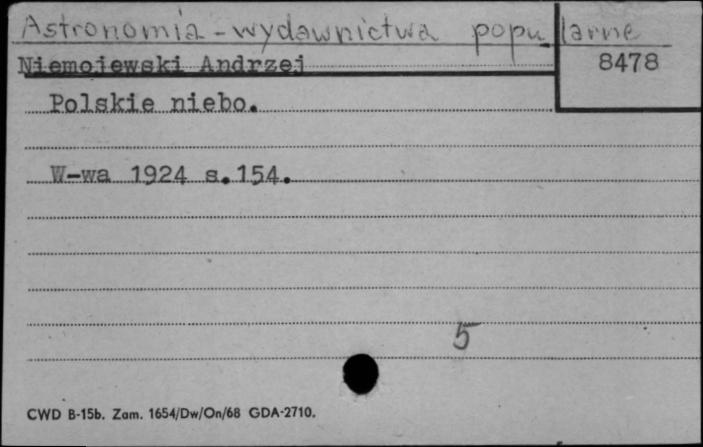 Astronomia - wydawnictwa popularne
Niemojewski Andrzej
8478
Polskie niebo.
W-wa 1924 s.154.
5
CWD B-15b. Zam. 1654/Dw/On/68 GDA-2710.